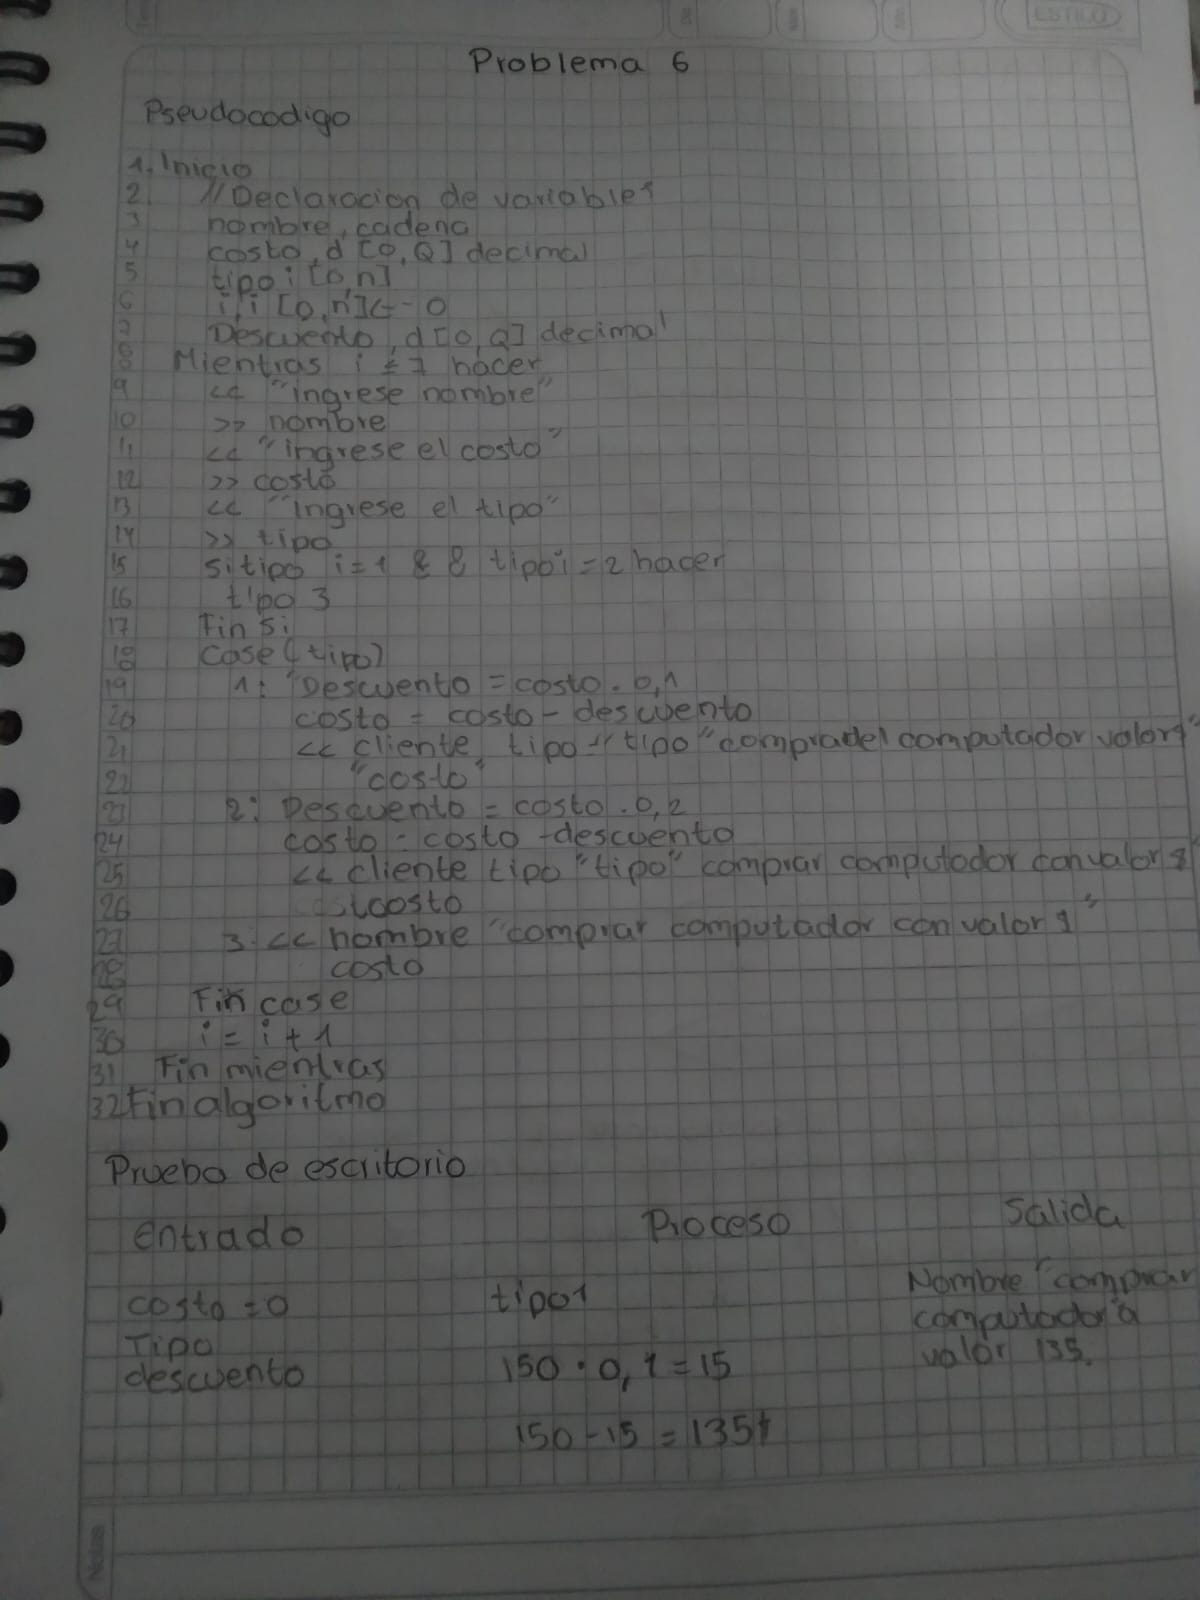 ESTILO
Problema 6
Pseudocodigo
1. Inicio
2 // Declaracion de variables
3 nombre, cadena
4 costo, d [0, Q] decimal
5 tipo i [0, n]
6 i, i [0, n] <- 0
7 Descuento, d [0, Q] decimal
8 Mientras i ≤ 7 hacer
9 << "ingrese nombre"
10 >> nombre
11 << "ingrese el costo"
12 >> costo
13 << "ingrese el tipo"
14 >> tipo
15 si tipo i = 1 && tipo i = 2 hacer
16 tipo 3
17 Fin si
18 Case (tipo)
19 1: Descuento = costo . 0,1
20 costo = costo - descuento
21 << cliente tipo " tipo " compra del computador valor $"
22 "costo"
23 2: Descuento = costo . 0,2
24 costo = costo - descuento
25 << cliente tipo "tipo" comprar computador con valor $"
26 costo
27 3. << nombre "comprar computador con valor $"
28 costo
29 Fin case
30 i = i + 1
31 Fin mientras
32 Fin algoritmo
Prueba de escritorio
entrada Proceso Salida
costo = 0 tipo 1 Nombre "comprar
Tipo computador a
descuento 150 . 0,1 = 15 valor 135.
150 - 15 = 135
Notas